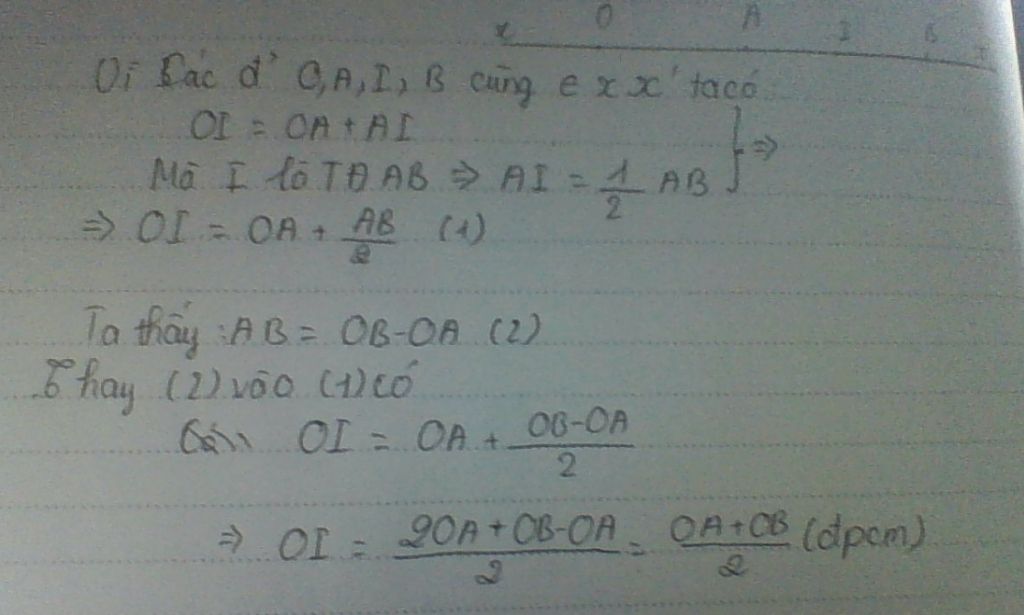 x O A I B
Vì các đ' O, A, I, B cùng ∈ x x' ta có
OI = OA + AI
Mà I là TĐ AB ⇒ AI = 1/2 AB } ⇒
⇒ OI = OA + AB/2 (1)
Ta thấy : AB = OB - OA (2)
Thay (2) vào (1) có
OI = OA + OB-OA/2
⇒ OI = 2OA + OB - OA/2 = OA + OB/2 (đpcm)